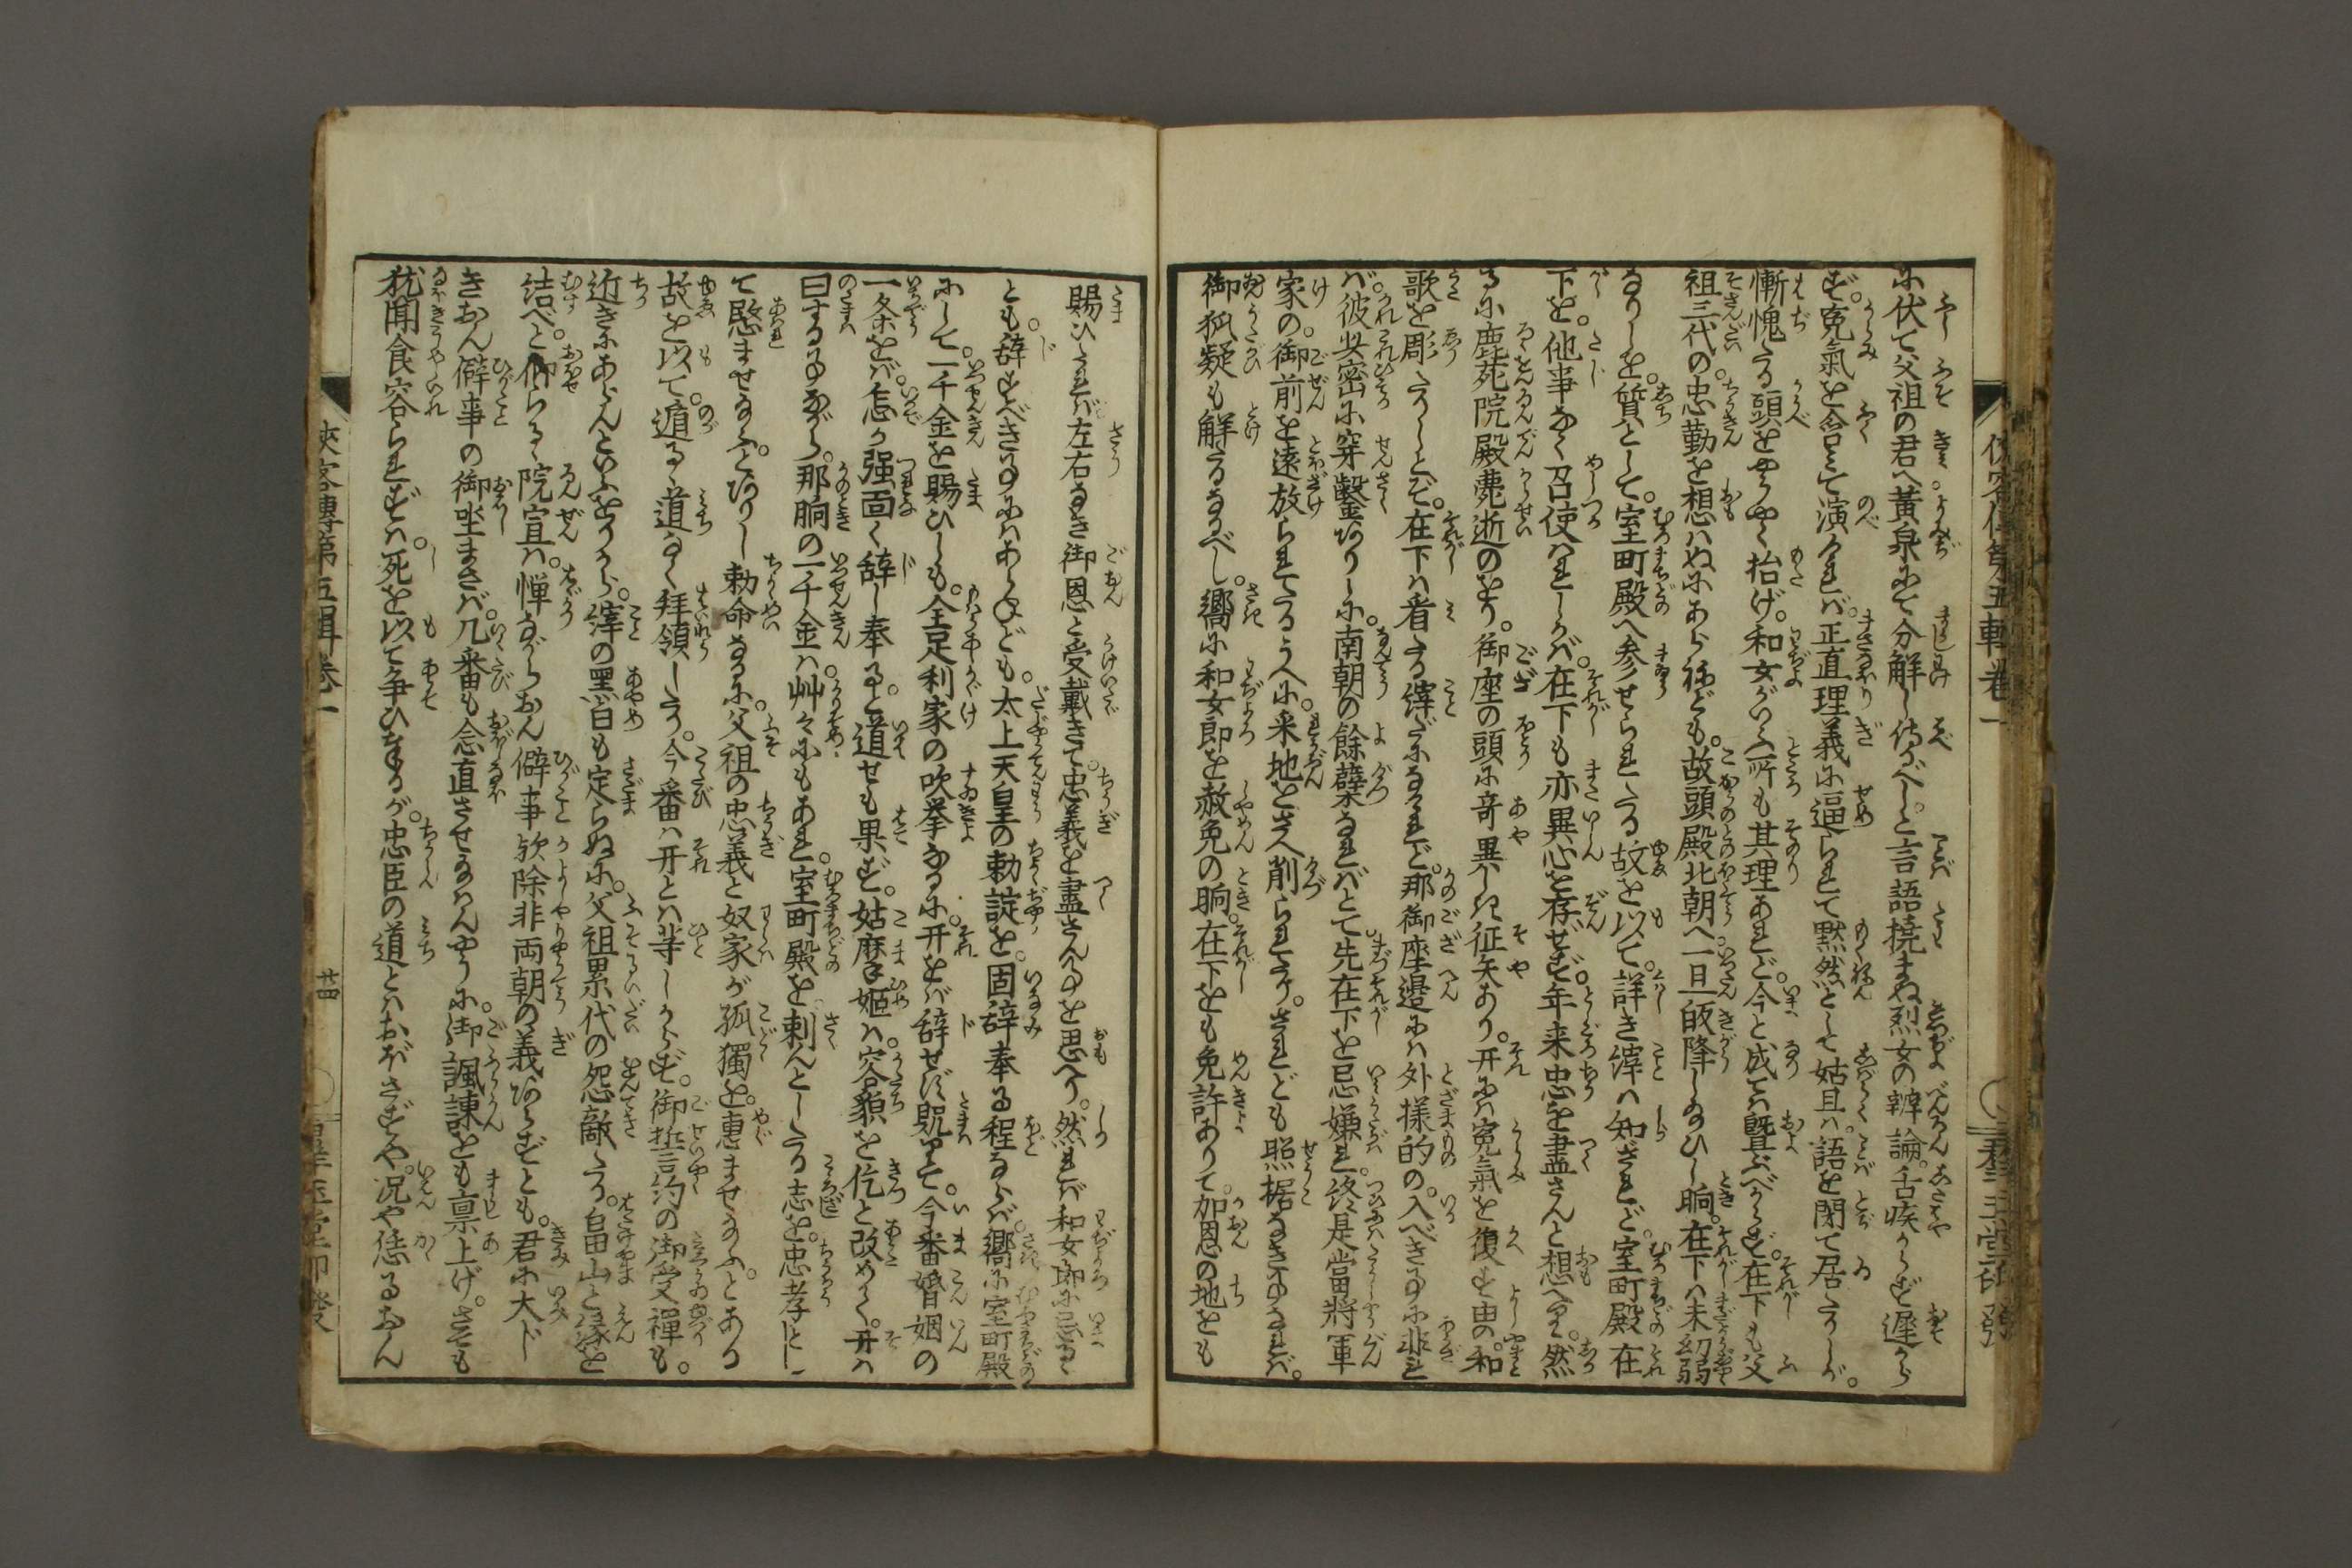 に伏て父祖の君へ黄泉にて分解し侍るべしと言語撓まぬ烈女の辯論。舌疾からず遅から
ず。寃氣を含みて演れば。正直理義に逼られて黙然として姑且は。語を閉て居たりしが。
慚愧たる頭をやうやく抬げ。和女がいふ所も其理あれど。今と成ては曁ぶべからず。在下も父
祖三代の。忠勤を想はぬにあらねども。故頭殿北朝へ一旦皈降し給ひし晌。在下は未幼弱
なりしを。質として。室町殿へ参せられたる故を以て。詳き縡は知ざれど。室町殿在
下を。他事なく召使はれしかば。在下も亦異心を存ぜず。年来忠を盡さんと想へり。然
るに鹿苑院殿薨逝のをり。御座の頭に竒異しき征矢あり。开には寃氣を復す由の。和
歌を彫たりしとぞ。在下は看たる縡だになけれど。那御座邊には外様的の。入べき事に非ど
ば。彼此密に穿鑿ありしに。南朝の餘蘖なればとて先在下を忌嫌れ。終是當將軍
家の。御前を遠放られたるうへに。采地をさへ削られたり。されども照据なき事なれば。
御狐疑も解たるなるべし。嚮に和女郎を赦免の晌。在下をも免許ありて。加恩の地をも
賜ひたれば左右なき御恩と受戴きて。忠義を盡さん事を思へり。然れば和女郎に忌るゝ
とも。辞すべき事にはあらねども。太上天皇の勅諚を。固辞奉る程ならば。嚮に室町殿
にして。一千金を賜ひしも。全足利家の吹挙なるに。开をば辞せず貺りて。今番婚姻の
一条をば。怎か强面く辞し奉ると。道せも果ず。姑摩姫は。容貌を佶と改めて。开は
曰する事ながら。那晌の一千金は。艸々にもあれ。室町殿を刺んとしたる志を。忠孝に
て愍ませ給ふ。とありし勅命なるに。父祖の忠義と奴家が孤獨を。惠ませ給ふ。とある
故を以て。遁るゝ道なく拜領したり。今番は开とは等しからず。御誓約の御受禪も。
近きにあらんといふをりから。縡の黑白も定らぬに。父祖累代の怨敵たる。畠山と縁を
結べと。仰らるゝ院宣は。憚ながらおん僻事歟除非両朝の義あらずとも。君に大じ
きおん僻事の御坐まさば。几番も念直させ給はんやうに。御諷諫とも稟上げ。さても
犹聞食容られずは。死を以て争ひまゐるが。忠臣の道とはおぼさずや。况や恁るおん
俠客傳第五輯卷一
廿四
群玉堂印發